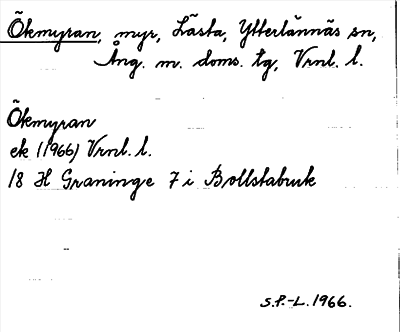 Ökmyran, myr, Lästa, Ytterlännäs sn,
Ång. m. doms. tg, Vrnl. l.
Ökmyran
ek (1966) Vrnl. l.
18 H Graninge 7 i Bollstabruk
S.P.-L. 1966.